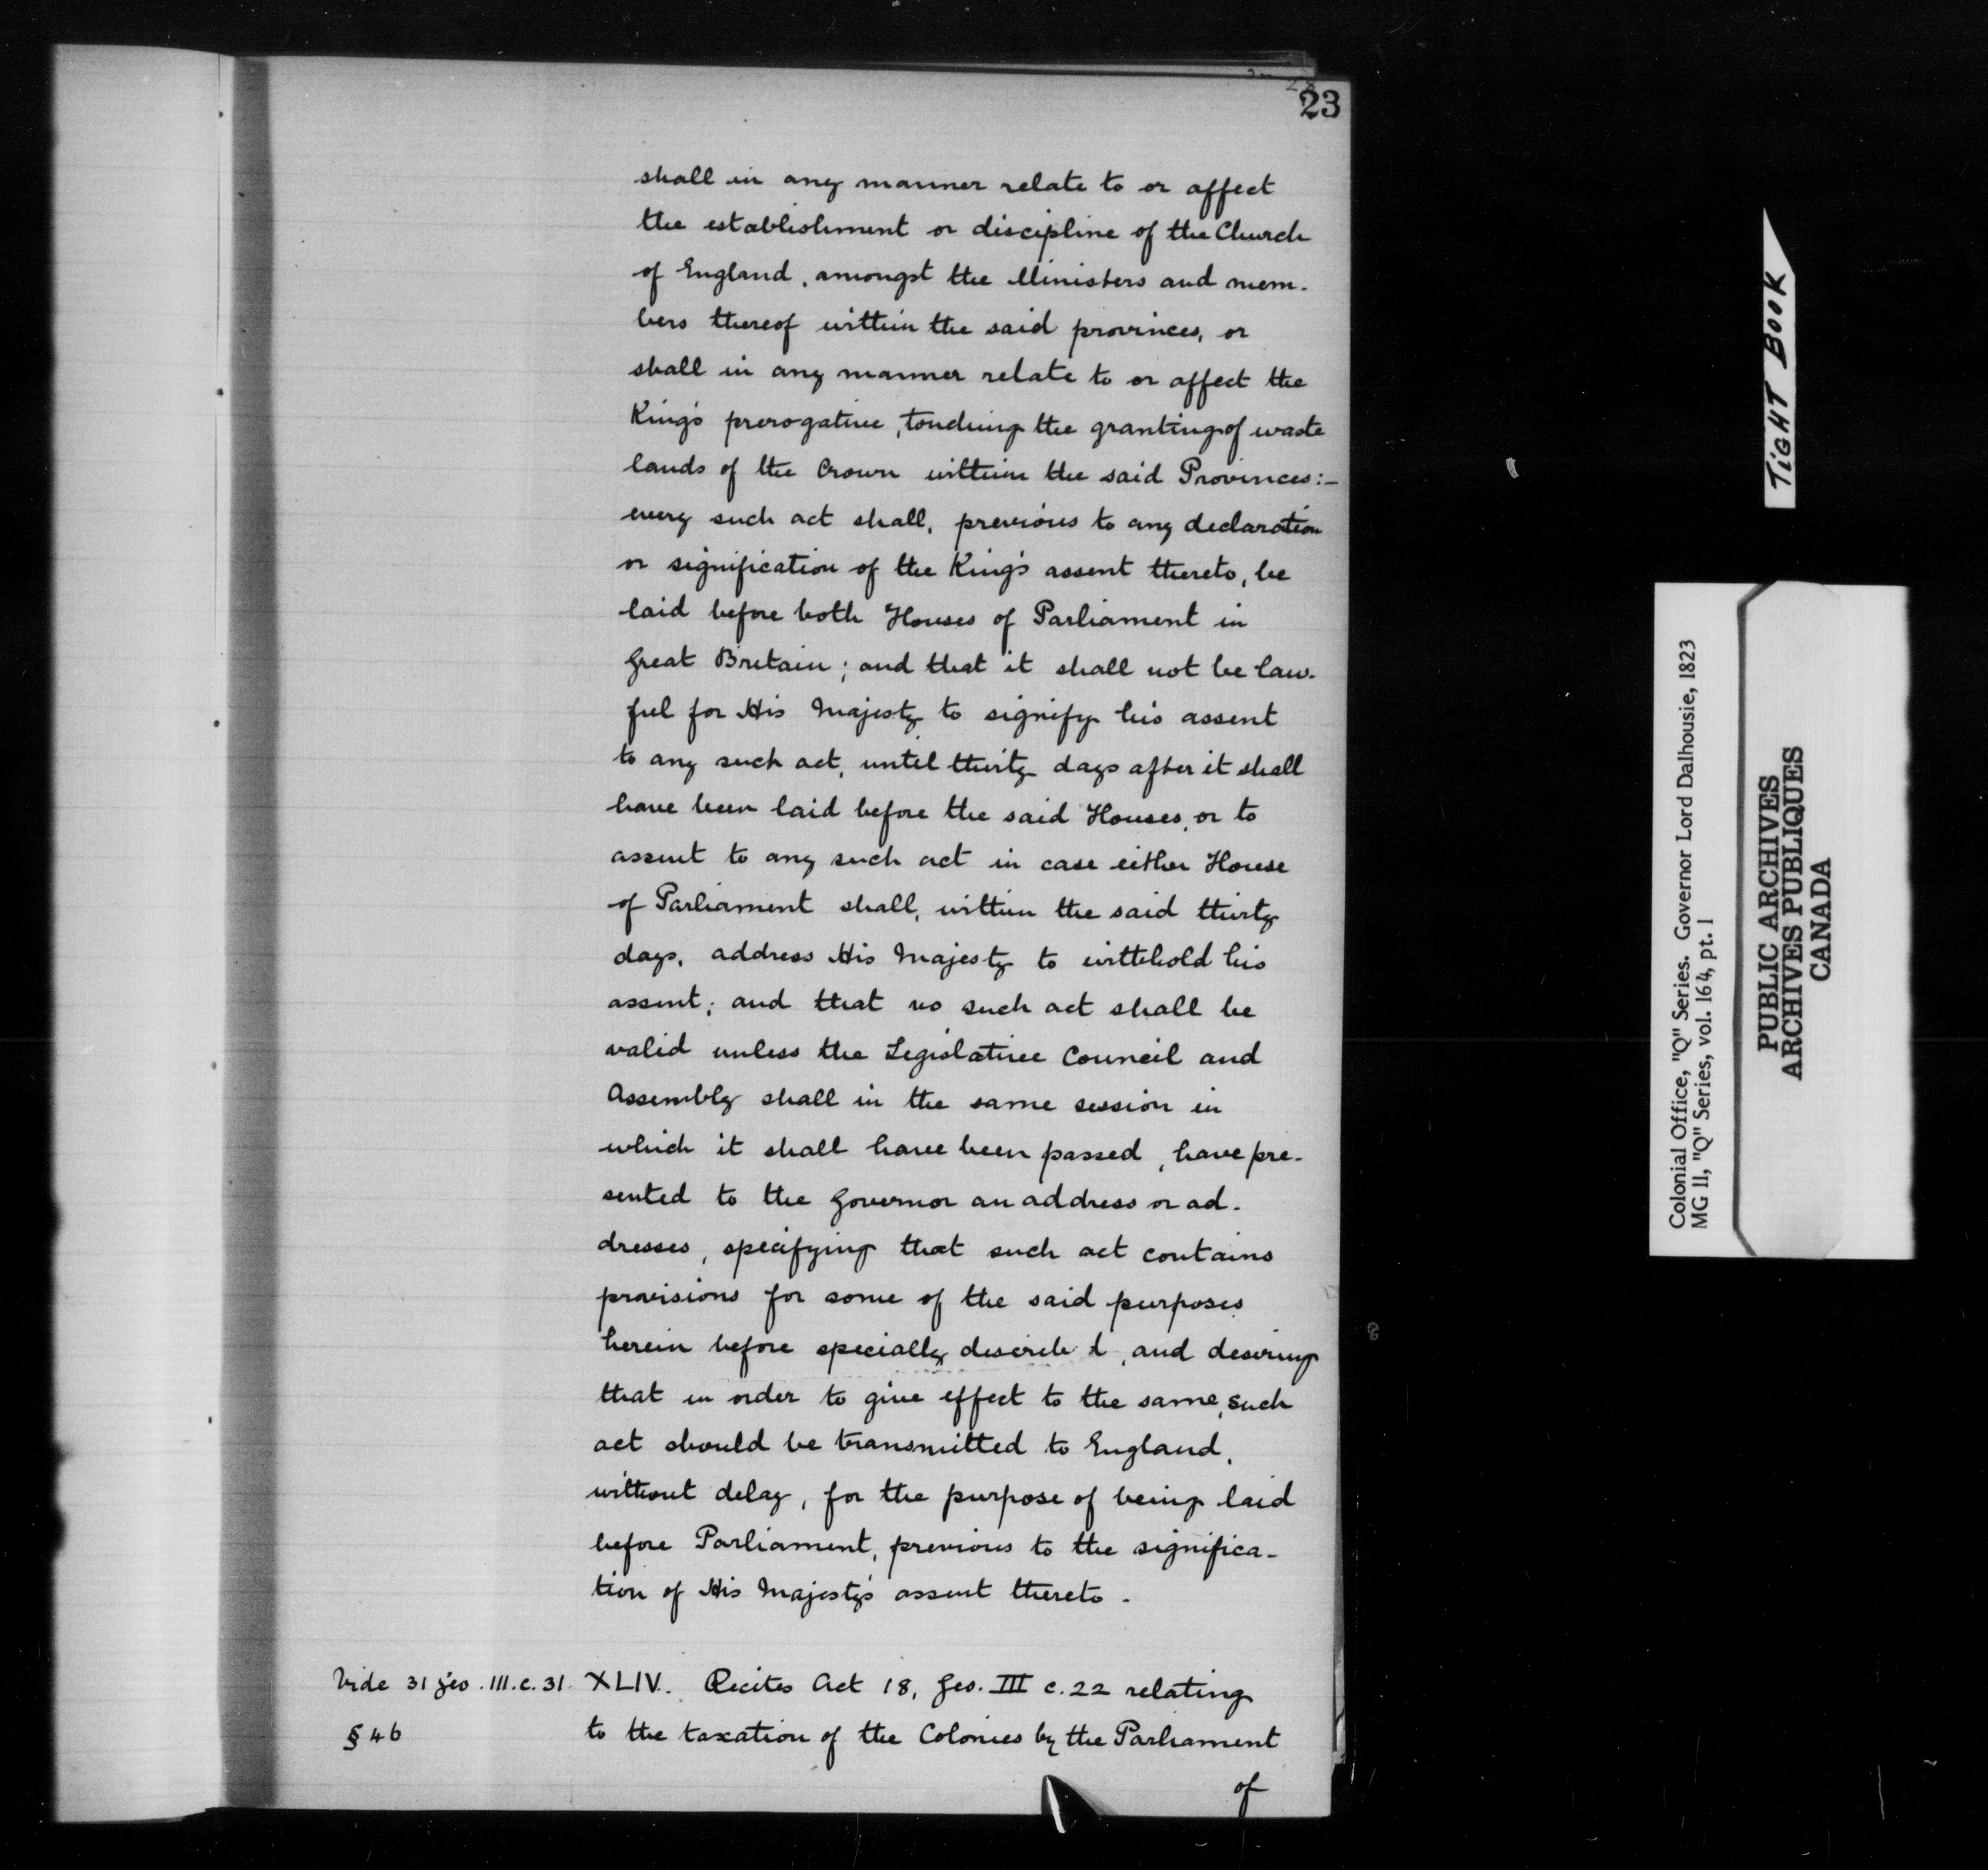 23
shall in any manner relate to or affect
the establishment or discipline of the Church
of England, amongst the Ministers and mem-
bers thereof within the said provinces, or
shall in any manner relate to or affect the
King's prerogative, touching the granting of waste
lands of the Crown within the said Provinces:-
every such act shall, previous to any declaration
or signification of the King's assent thereto, be
laid before both Houses of Parliament in
Great Britain; and that it shall not be law-
ful for His Majesty to signify his assent
to any such act, until thirty days after it shall
have been laid before the said Houses, or to
assent to any such act in case either House
of Parliament shall, within the said thirty
days, address His Majesty to withhold his
assent; and that no such act shall be
valid unless the Legislative Council and
Assembly shall in the same session in
which it shall have been passed, have pre-
sented to the Governor an address or ad-
dresses, specifying that such act contains
provisions for some of the said purposes
herein before specially describ d, and desiring
that in order to give effect to the same, such
act should be transmitted to England,
without delay, for the purpose of being laid
before Parliament, previous to the significa-
tion of His Majesty's assent thereto.
Vide 31 Geo. III. c. 31. XLIV. Recites Act 18, Geo. III c. 22 relating
§ 46 to the taxation of the Colonies by the Parliament
of
TIGHT BOOK
Colonial Office, "Q" Series. Governor Lord Dalhousie, 1823
MG 11, "Q" Series, vol. 164, pt. 1
PUBLIC ARCHIVES
ARCHIVES PUBLIQUES
CANADA